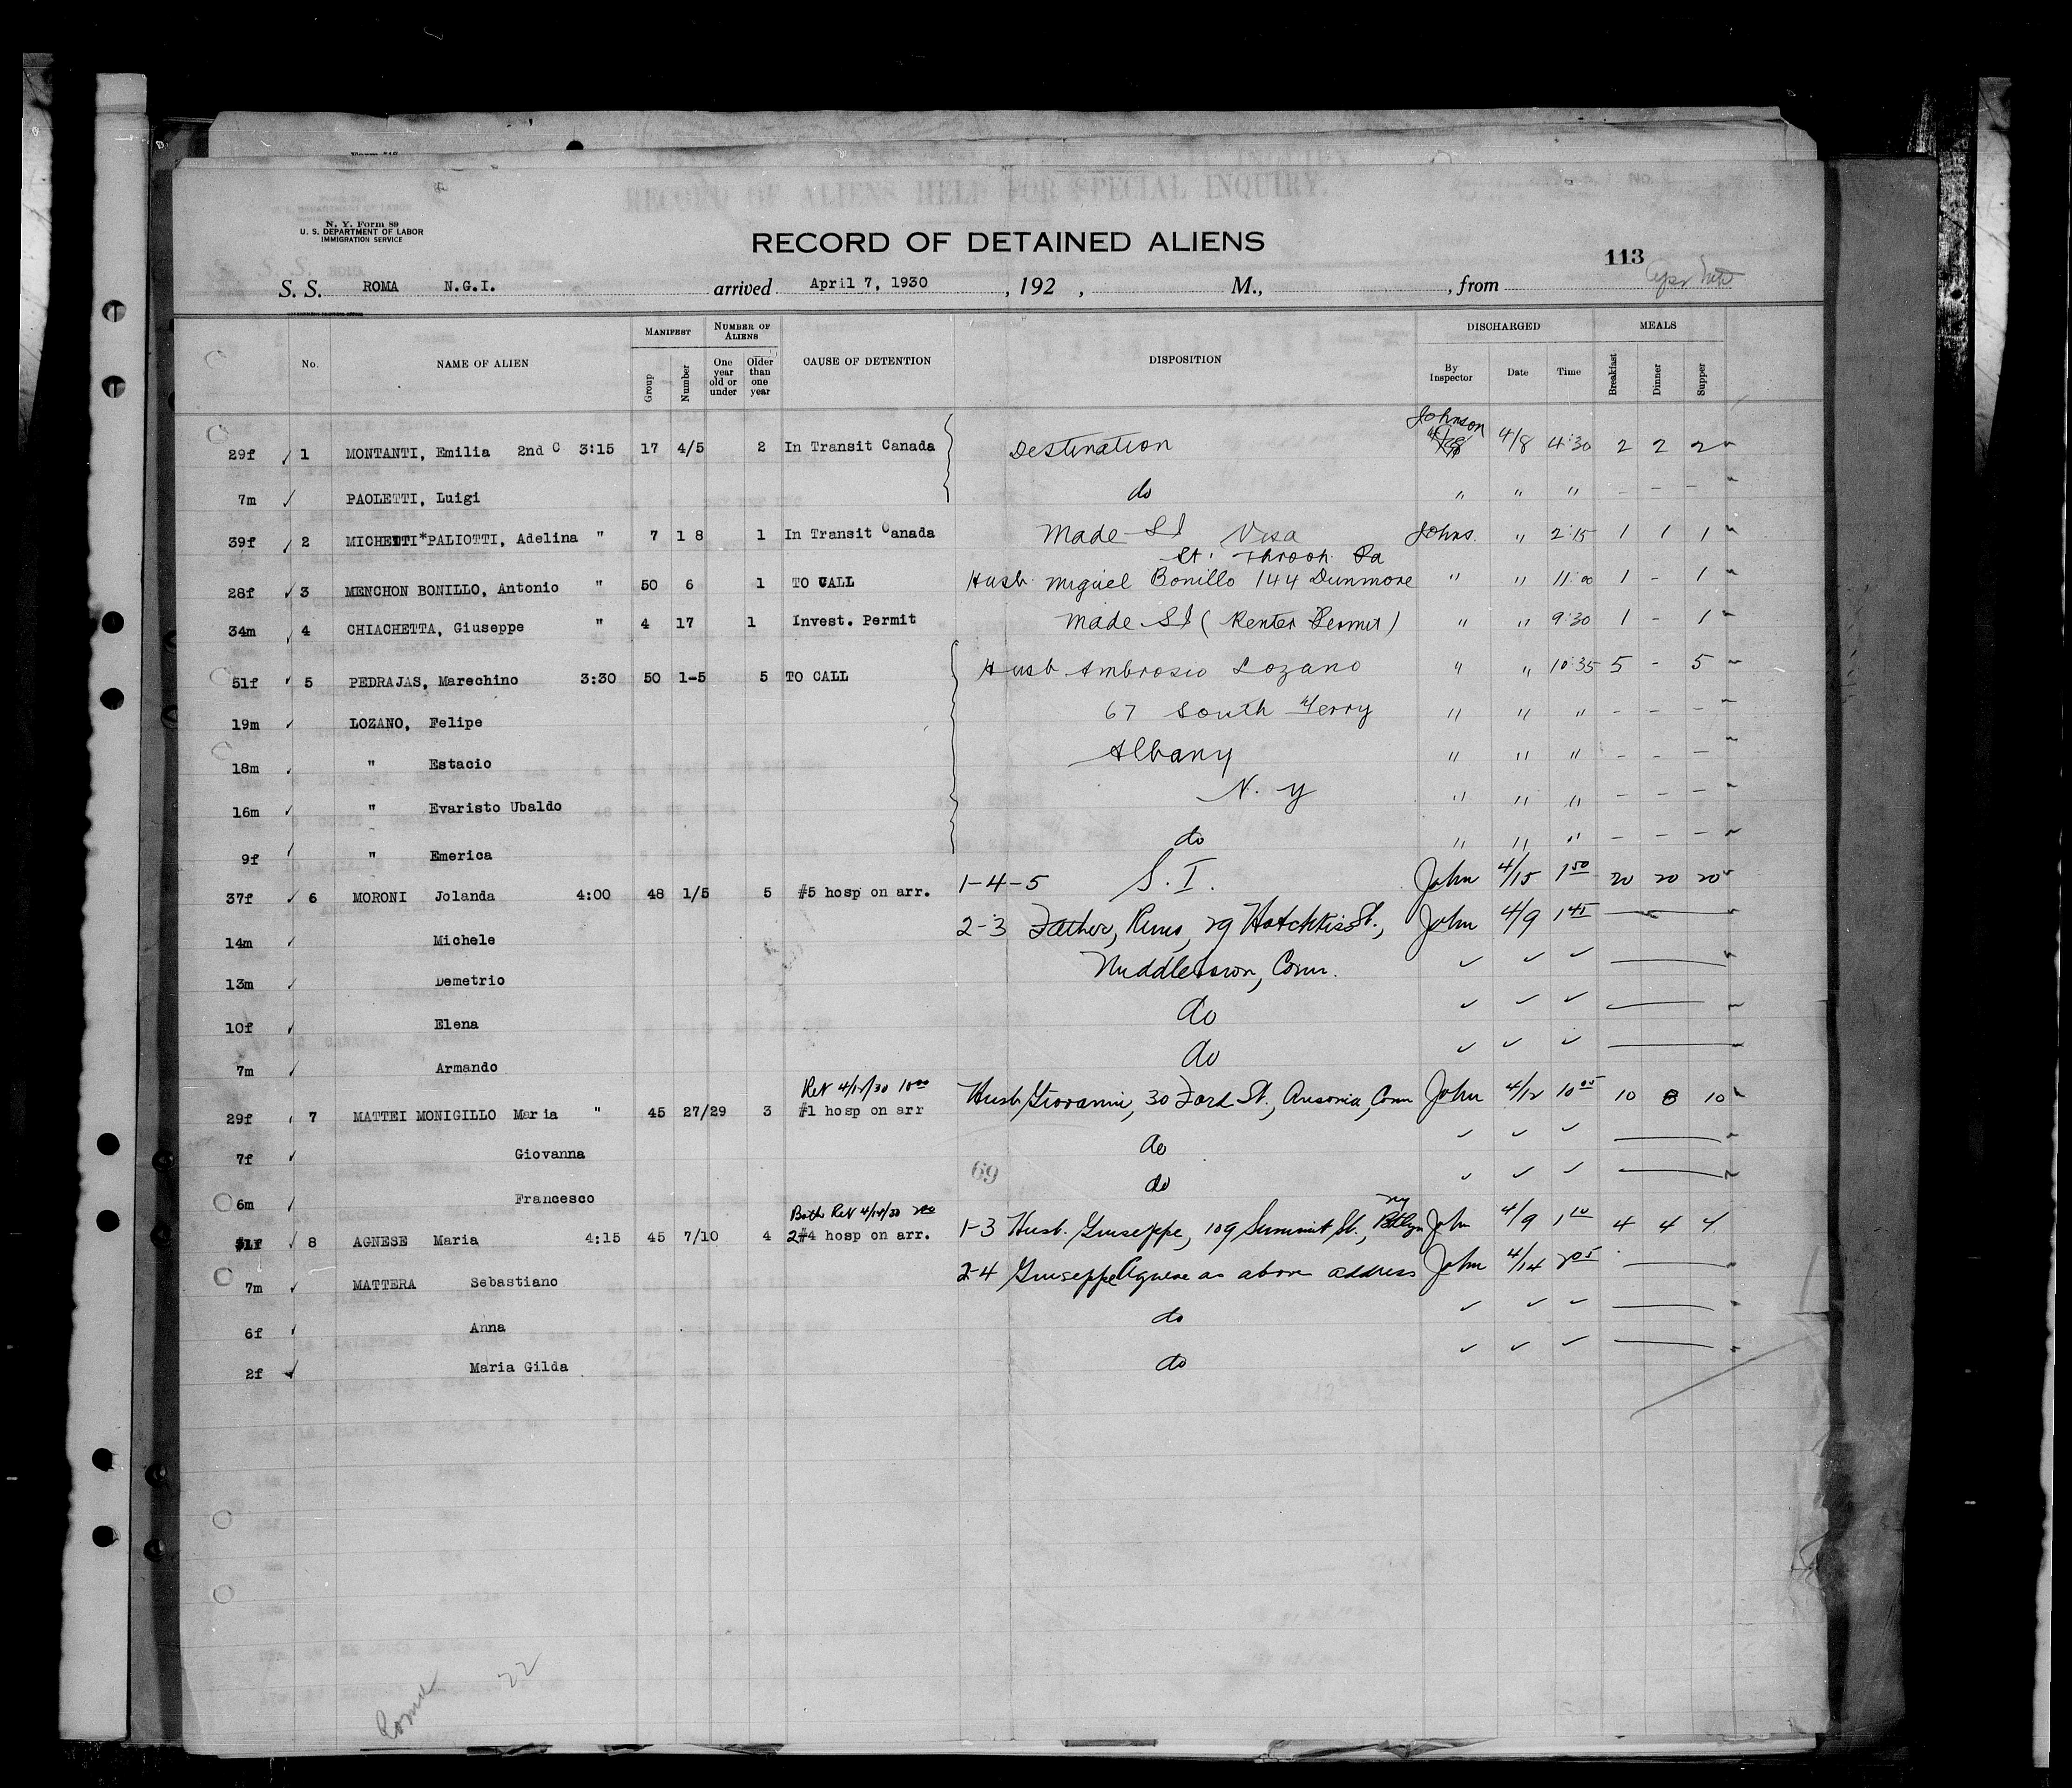 N. Y. Form 89
U. S. DEPARTMENT OF LABOR
IMMIGRATION SERVICE
RECORD OF ALIENS HELD FOR SPECIAL INQUIRY.
RECORD OF DETAINED ALIENS
113
S. S. ROMA N.G.I. arrived April 7, 1930, 192 , M., , from
No. NAME OF ALIEN MANIFEST Group Number NUMBER OF ALIENS One year old or under Older than one year CAUSE OF DETENTION DISPOSITION DISCHARGED By Inspector Date Time MEALS Breakfast Dinner Supper
29f 1 MONTANTI, Emilia 2nd C 3:15 17 4/5 2 In Transit Canada Destination Johnson 4/8 4:30 2 2 2
7m PAOLETTI, Luigi do " " " - - -
39f 2 MICHETTI*PALIOTTI, Adelina " 7 1 8 1 In Transit Canada Made SI Visa Johns. " 2:15 1 1 1
St. Throop Pa
28f 3 MENCHON BONILLO, Antonio " 50 6 1 TO CALL Husb. Miguel Bonillo 144 Dunmore " " 11:00 1 - 1
34m 4 CHIACHETTA, Giuseppe " 4 17 1 Invest. Permit Made SI (Renter Permit) " " 9:30 1 - 1
51f 5 PEDRAJAS, Marechino 3:30 50 1-5 5 TO CALL Husb Ambrosio Lozano " " 10:35 5 - 5
19m LOZANO, Felipe 67 South Ferry " " " - - -
18m " Estacio Albany " " " - - -
16m " Evaristo Ubaldo N. Y " " " - - -
9f " Emerica do " " " - - -
37f 6 MORONI Jolanda 4:00 48 1/5 5 #5 hosp on arr. 1-4-5 S. I. John 4/15 1 50 20 20 20
14m Michele 2-3 Father, 29 Hotchkiss St., John 4/9 1 45
13m Demetrio Middletown, Conn.
10f Elena do
7m Armando do
Ret 4/12/30 10 00
29f 7 MATTEI MONIGILLO Maria " 45 27/29 3 #1 hosp on arr Husb Giovanni, 30 Ford St., Ansonia, Conn John 4/12 10 05 10 8 10
7f Giovanna do
69
6m Francesco do
Both Ret 4/14/30 2 00
8 AGNESE Maria 4:15 45 7/10 4 2#4 hosp on arr. 1-3 Husb. Giuseppe, 109 Summit St., Bklyn NY John 4/9 1 10 4 4 4
7m MATTERA Sebastiano 2-4 Giuseppe Agnese as above address John 4/14 2 05
6f Anna do
2f Maria Gilda do
Roma 22